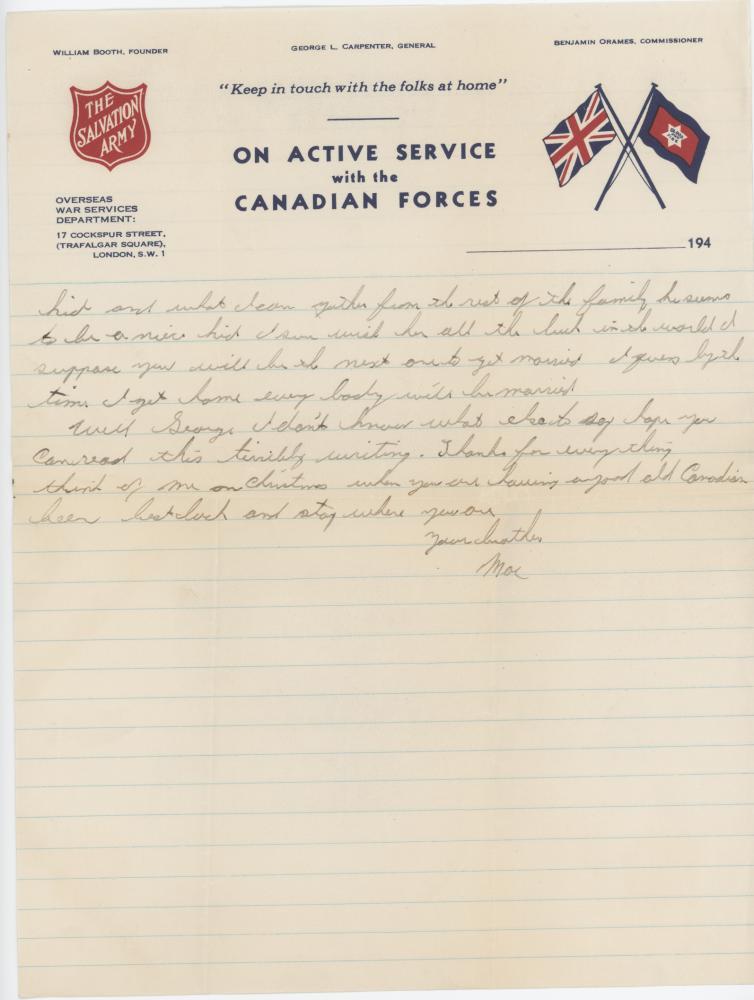 WILLIAM BOOTH, FOUNDER
GEORGE L. CARPENTER, GENERAL
BENJAMIN ORAMES, COMMISSIONER
THE
SALVATION
ARMY
"Keep in touch with the folks at home"
ON ACTIVE SERVICE
with the
CANADIAN FORCES
OVERSEAS
WAR SERVICES
DEPARTMENT:
17 COCKSPUR STREET,
(TRAFALGAR SQUARE),
LONDON, S.W. 1
194
kid and what I can gather from the rest of the family he seems
to be a nice kid I sure wish her all the luck in the world I
suppose you will be the next one to get married I guess by the
time I get home every body will be married
Well George I don't know what else to say hope you
can read this terribly writing. Thanks for every thing
think of me on Christmas when you are having a good old Canadian
beer best luck and stay where you are
Your brother
Moe